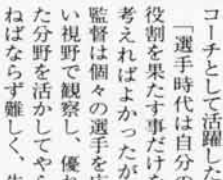 コーチとして活躍した
「選手時代は自分の
役割を果たす事だけを
考えればよかったが
監督は個々の選手を広
い視野で観察し、優れ
た分野を活かしてやら
ねばならず難しく、